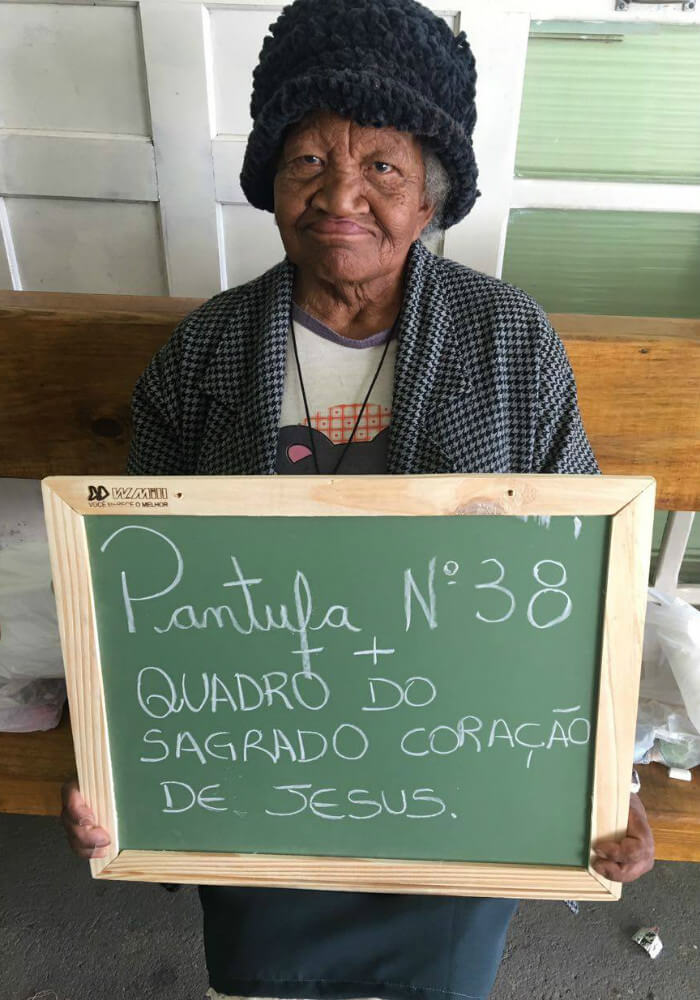 WMill
VOCÊ MERECE O MELHOR
Pantufa Nº 38
+ +
QUADRO DO
SAGRADO CORAÇÃO
DE JESUS.